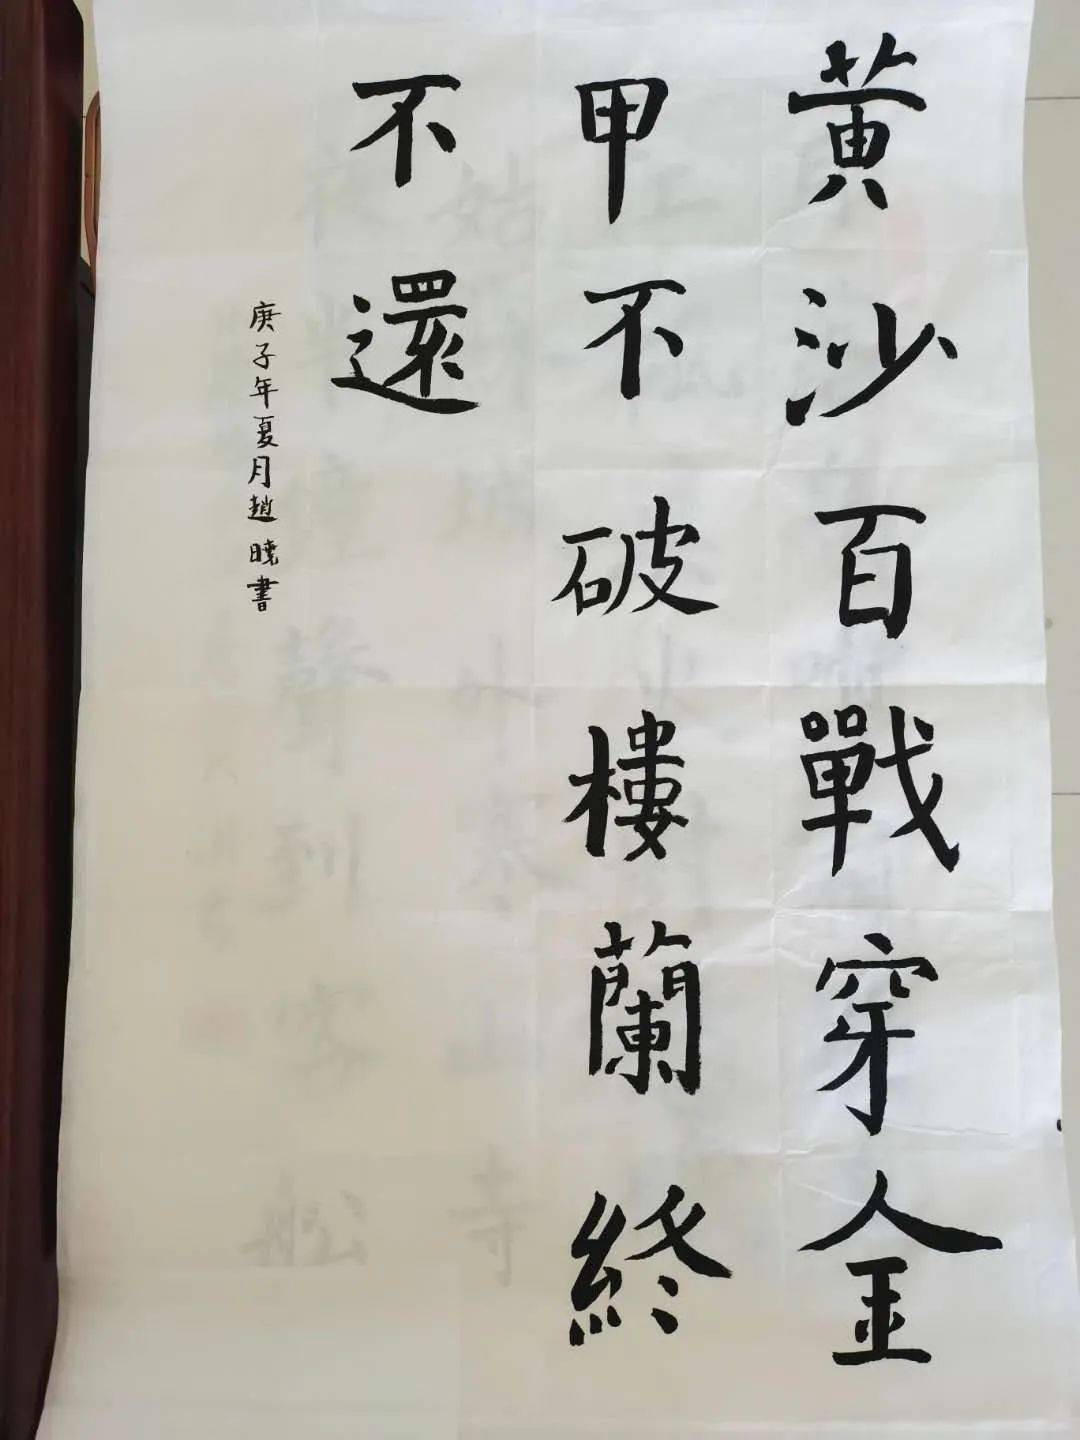 黄沙百戰穿金
甲不破樓蘭終
不還
庚子年夏月趙曉書